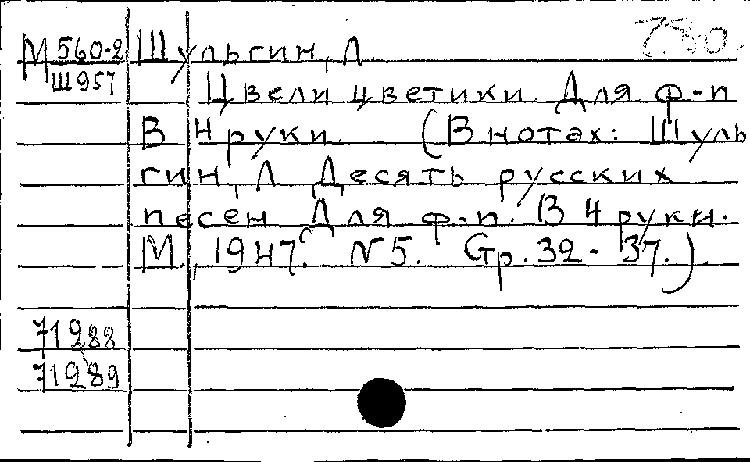 М 560-2 Шульгин, Л
Ш957
Цвели цветики. Для ф-п
В 4 руки. (В нотах: Шуль
гин, Л Десять русских
песен Для ф-п. В 4 руки.
М., 1947. N5. Cтр. 32-37.)
71288
71289